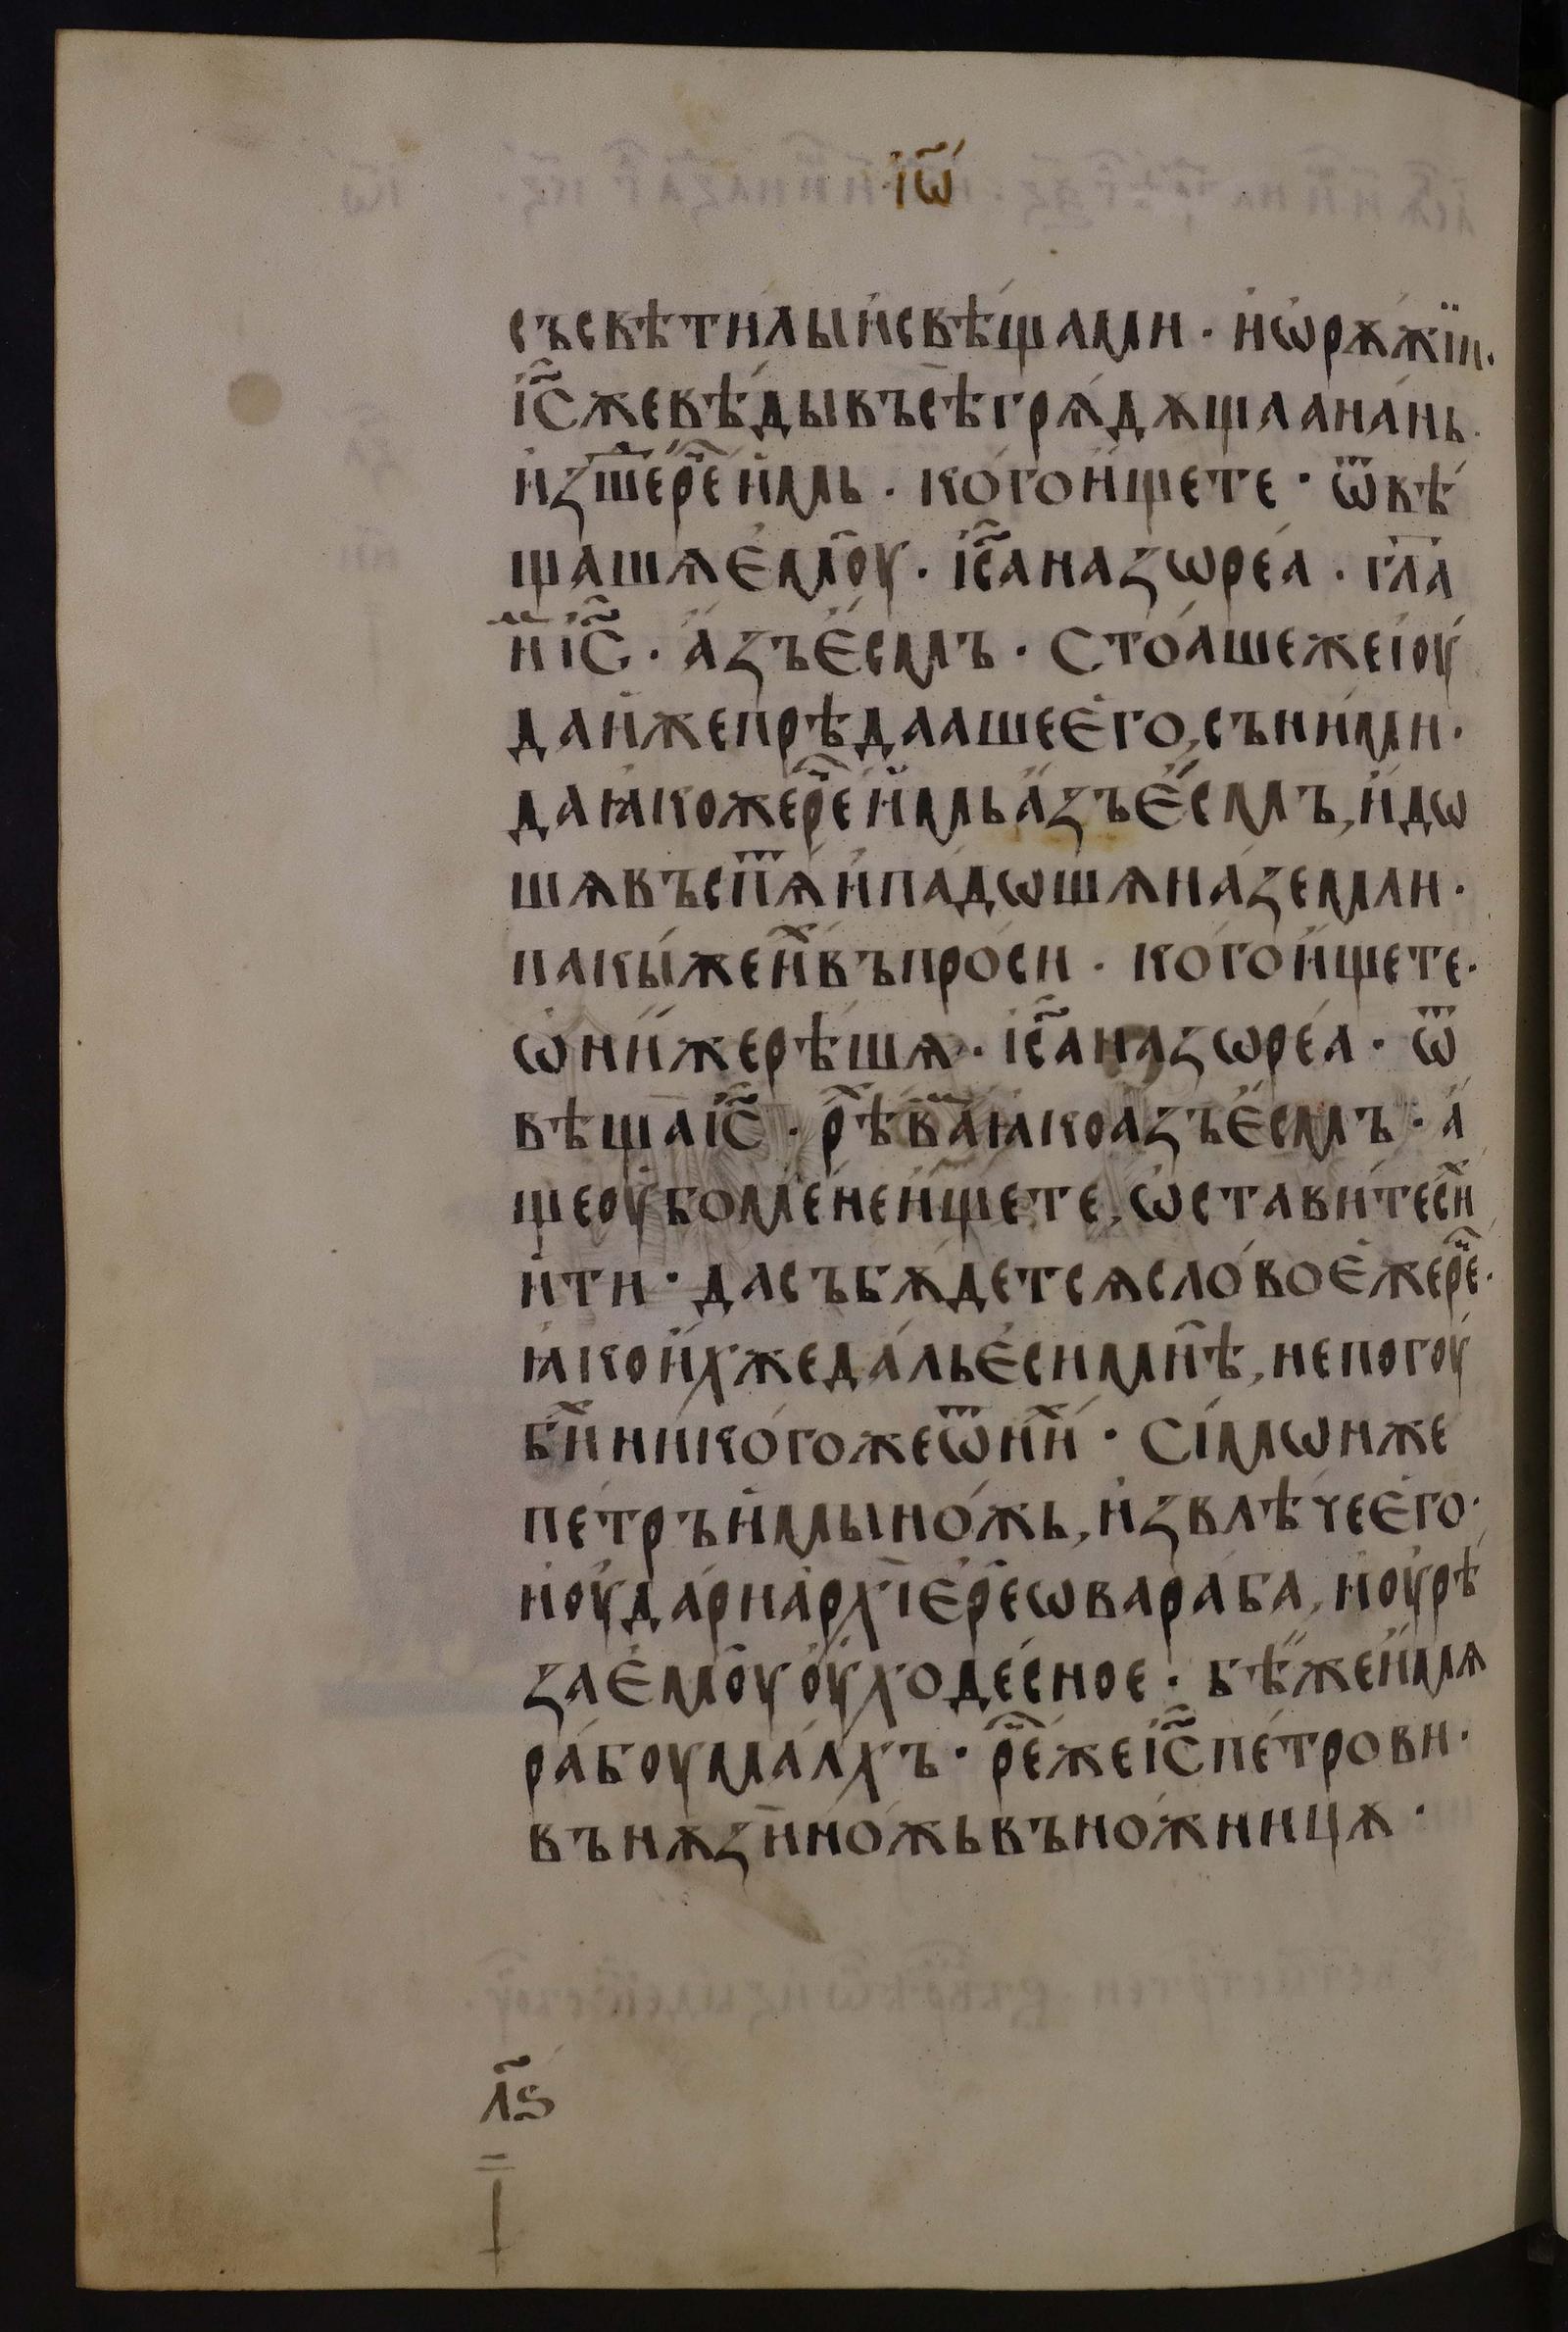 іѡ҃
съсвѣти́лыи҆свѣ́щамн · и҆ѡ҆рѫ́жїи.
і҆с҃жевѣ́дывъсѣ̀грѧ́дѫщаана́нь.
и҆зше́рече и҆мь · кого̀и҆́щете · ѿвѣ
щашѧе҆моу̀ · і҆с҃аназѡре́а · гл҃а
и҆мі҆с҃ · а҆́зъе҆́смъ · Сто́ашежеіоу́
даи҆́жепрѣдаашее҆го̀, съни́ми ·
даꙗ҆́кожерече и҆́мьа҆́зъе҆́смъ, и҆́дѡ
шѧвъспѧ́ть и҆па́дѡшѧназемли ·
пакы́жеи҆хъвъпросѝ · кого̀и҆́щете ·
ѡ҆ни́жерѣ́шѧ · і҆с҃аназѡре́а · ѿ
вѣщаі҆с҃ · рѣхъва́мꙗ҆́коа҆́зъе҆́смъ · а҆́
щеоу҆́боменѐи҆́щете, ѡ҆ставитеси́хъ
и҆тѝ · дасъбѫ́детсѧсло́вое҆́жерече ·
ꙗ҆́кои҆́хжеда́льеси́мнѣ̀, непогоу
би́хъникого́жеѿни́хъ · Сі́мѡнже
пе́тръи҆мы̀но́жь, и҆звлѣ́чее҆го̀ ·
и҆оу҆да́риа҆рхїе҆ре́ѡвараба̀, и҆оу҆рѣ́
зае҆моу̀оу҆́ходе́сное · бѣ́жеи҆́мѧ
рабоу̀ма́лхъ · ре́чежеі҆с҃пе́трови ·
вънѫзѝно́жьвъно́жницѫ ·
л҃ѕ